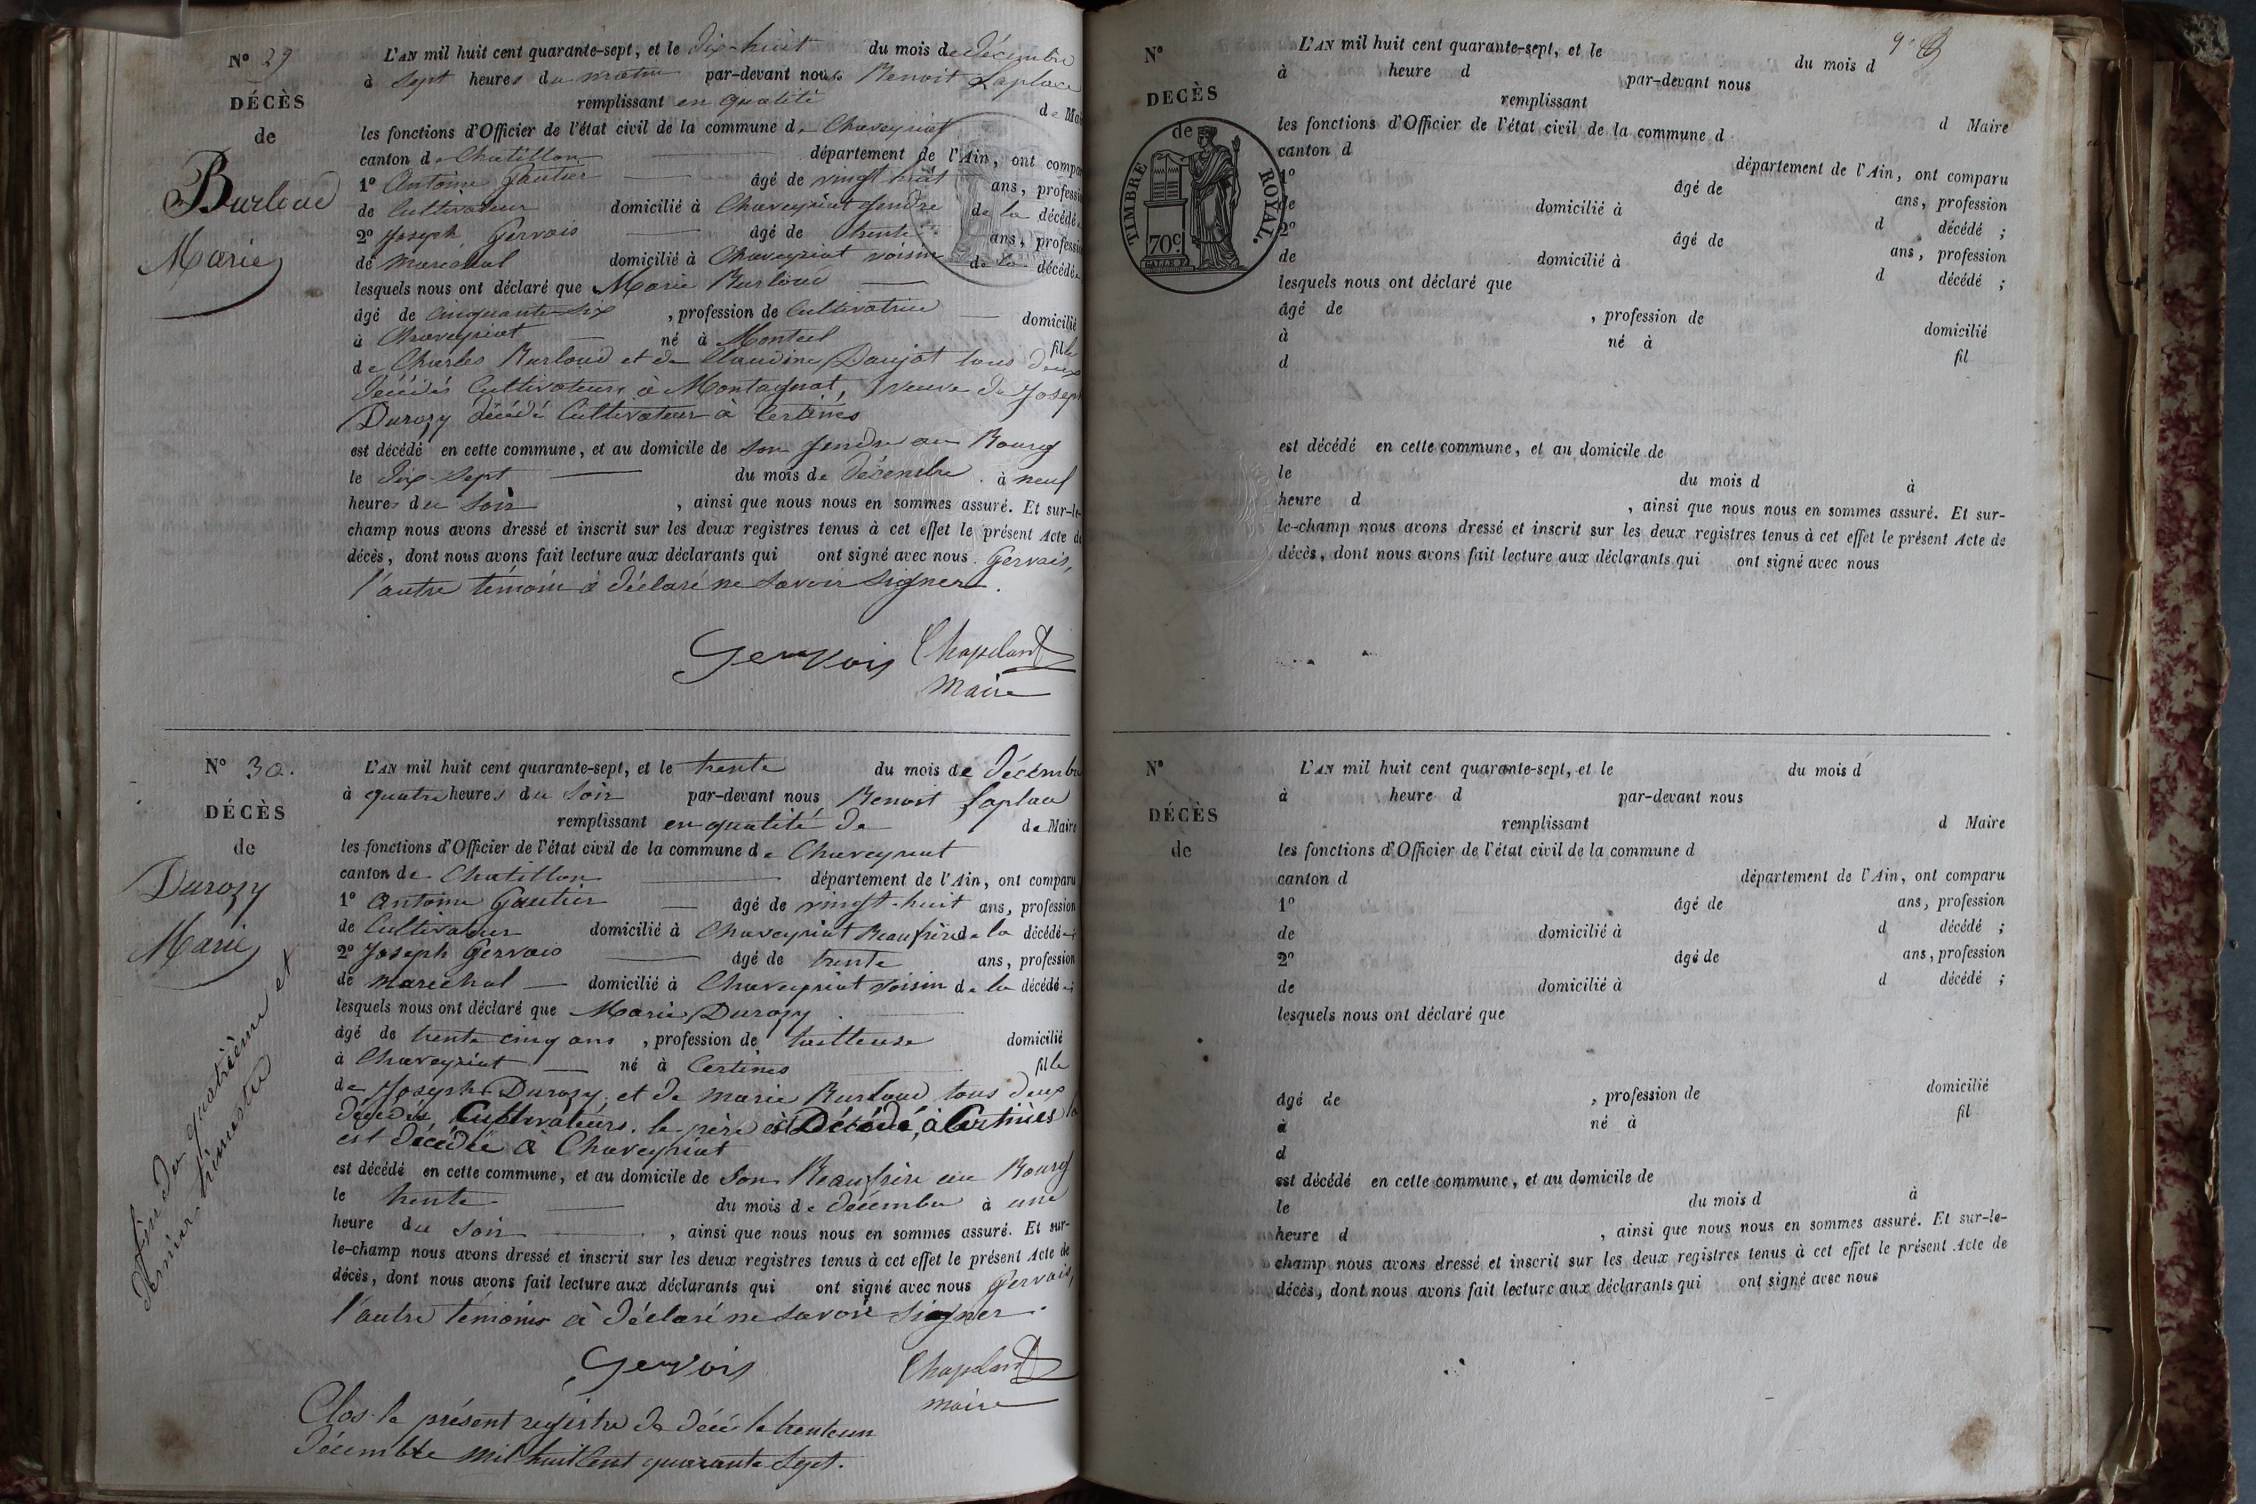 N° 29
DÉCÈS
de
Burloud
Marie
L'AN mil huit cent quarante-sept, et le dix-huit du mois de décembre
à sept heures du matin par-devant nous Benoit Laplace
remplissant en qualité de Mai
les fonctions d'Officier de l'état civil de la commune de Chaveyriat
canton de Chatillon département de l'Ain, ont compa
1° Antoine Gautier âgé de vingt huit ans, professi
de Cultivateur domicilié à Chaveyriat gendre de la décédée
2° Joseph Gervais âgé de trente ans, professi
de Maréchal domicilié à Chaveyriat voisin de la décédée
lesquels nous ont déclaré que Marie Burloud
âgé de cinquante-six , profession de Cultivatrice domicilié
à Chaveyriat né à fille
de Charles Burloud et de Claudine Daujat tous deux
décédés Cultivateurs à Montagnat, veuve de Joseph
Durozy décédé Cultivateur à Certines
est décédé en cette commune, et au domicile de son gendre au Bourg
le dix-sept du mois de décembre à neuf
heures du soir , ainsi que nous nous en sommes assuré. Et sur-le-
champ nous avons dressé et inscrit sur les deux registres tenus à cet effet le présent Acte de
décès, dont nous avons fait lecture aux déclarants qui ont signé avec nous. Gervais,
l'autre témoin a déclaré ne savoir signer.
Gervais Chapeland
Maire
N° 30.
DÉCÈS
de
Durozy
Marie
L'AN mil huit cent quarante-sept, et le trente du mois de décembre
à quatre heures du soir par-devant nous Benoit Laplace
remplissant en qualité de de Maire
les fonctions d'Officier de l'état civil de la commune de Chaveyriat
canton de Chatillon département de l'Ain, ont comparu
1° Antoine Gautier âgé de vingt-huit ans, profession
de Cultivateur domicilié à Chaveyriat Beaufrère de la décédée;
2° Joseph Gervais âgé de trente ans, profession
de Marechal domicilié à Chaveyriat voisin de la décédée;
lesquels nous ont déclaré que Marie Durozy
âgé de trente cinq ans , profession de tailleuse domicilié
à Chaveyriat né à Certines fille
de Joseph Durozy et de Marie Burloud tous deux
décédés Cultivateurs. le père est Décédé à Certines la
est décédée à Chaveyriat
est décédé en cette commune, et au domicile de son Beaufrère au Bourg
le trente du mois de décembre à une
heure du soir , ainsi que nous nous en sommes assuré. Et sur-
le-champ nous avons dressé et inscrit sur les deux registres tenus à cet effet le présent Acte de
décès, dont nous avons fait lecture aux déclarants qui ont signé avec nous Gervais,
l'autre témoin a déclaré ne savoir signer.
Gervais Chapeland
Maire
Fin du quatrième et
dernier trimestre
Clos le présent registre de décé le trenteun
Décembre mil huit Cent quarante Sept.
N°
DÉCÈS
de
TIMBRE ROYAL.
70c.
L'AN mil huit cent quarante-sept, et le du mois d
à heure d par-devant nous
remplissant d Maire
les fonctions d'Officier de l'état civil de la commune d
canton d département de l'Ain, ont comparu
1° âgé de ans, profession
de domicilié à d décédé ;
2° âgé de ans, profession
de domicilié à d décédé ;
lesquels nous ont déclaré que
âgé de , profession de domicilié
à né à fil
d
est décédé en cette commune, et au domicile de
le du mois d à
heure d , ainsi que nous nous en sommes assuré. Et sur-
le-champ nous avons dressé et inscrit sur les deux registres tenus à cet effet le présent Acte de
décès, dont nous avons fait lecture aux déclarants qui ont signé avec nous
N°
DÉCÈS
de
L'AN mil huit cent quarante-sept, et le du mois d
à heure d par-devant nous
remplissant d Maire
les fonctions d'Officier de l'état civil de la commune d
canton d département de l'Ain, ont comparu
1° âgé de ans, profession
de domicilié à d décédé ;
2° âgé de ans, profession
de domicilié à d décédé ;
lesquels nous ont déclaré que
âgé de , profession de domicilié
à né à fil
d
est décédé en cette commune, et au domicile de
le du mois d à
heure d , ainsi que nous nous en sommes assuré. Et sur-le-
champ nous avons dressé et inscrit sur les deux registres tenus à cet effet le présent Acte de
décès, dont nous avons fait lecture aux déclarants qui ont signé avec nous